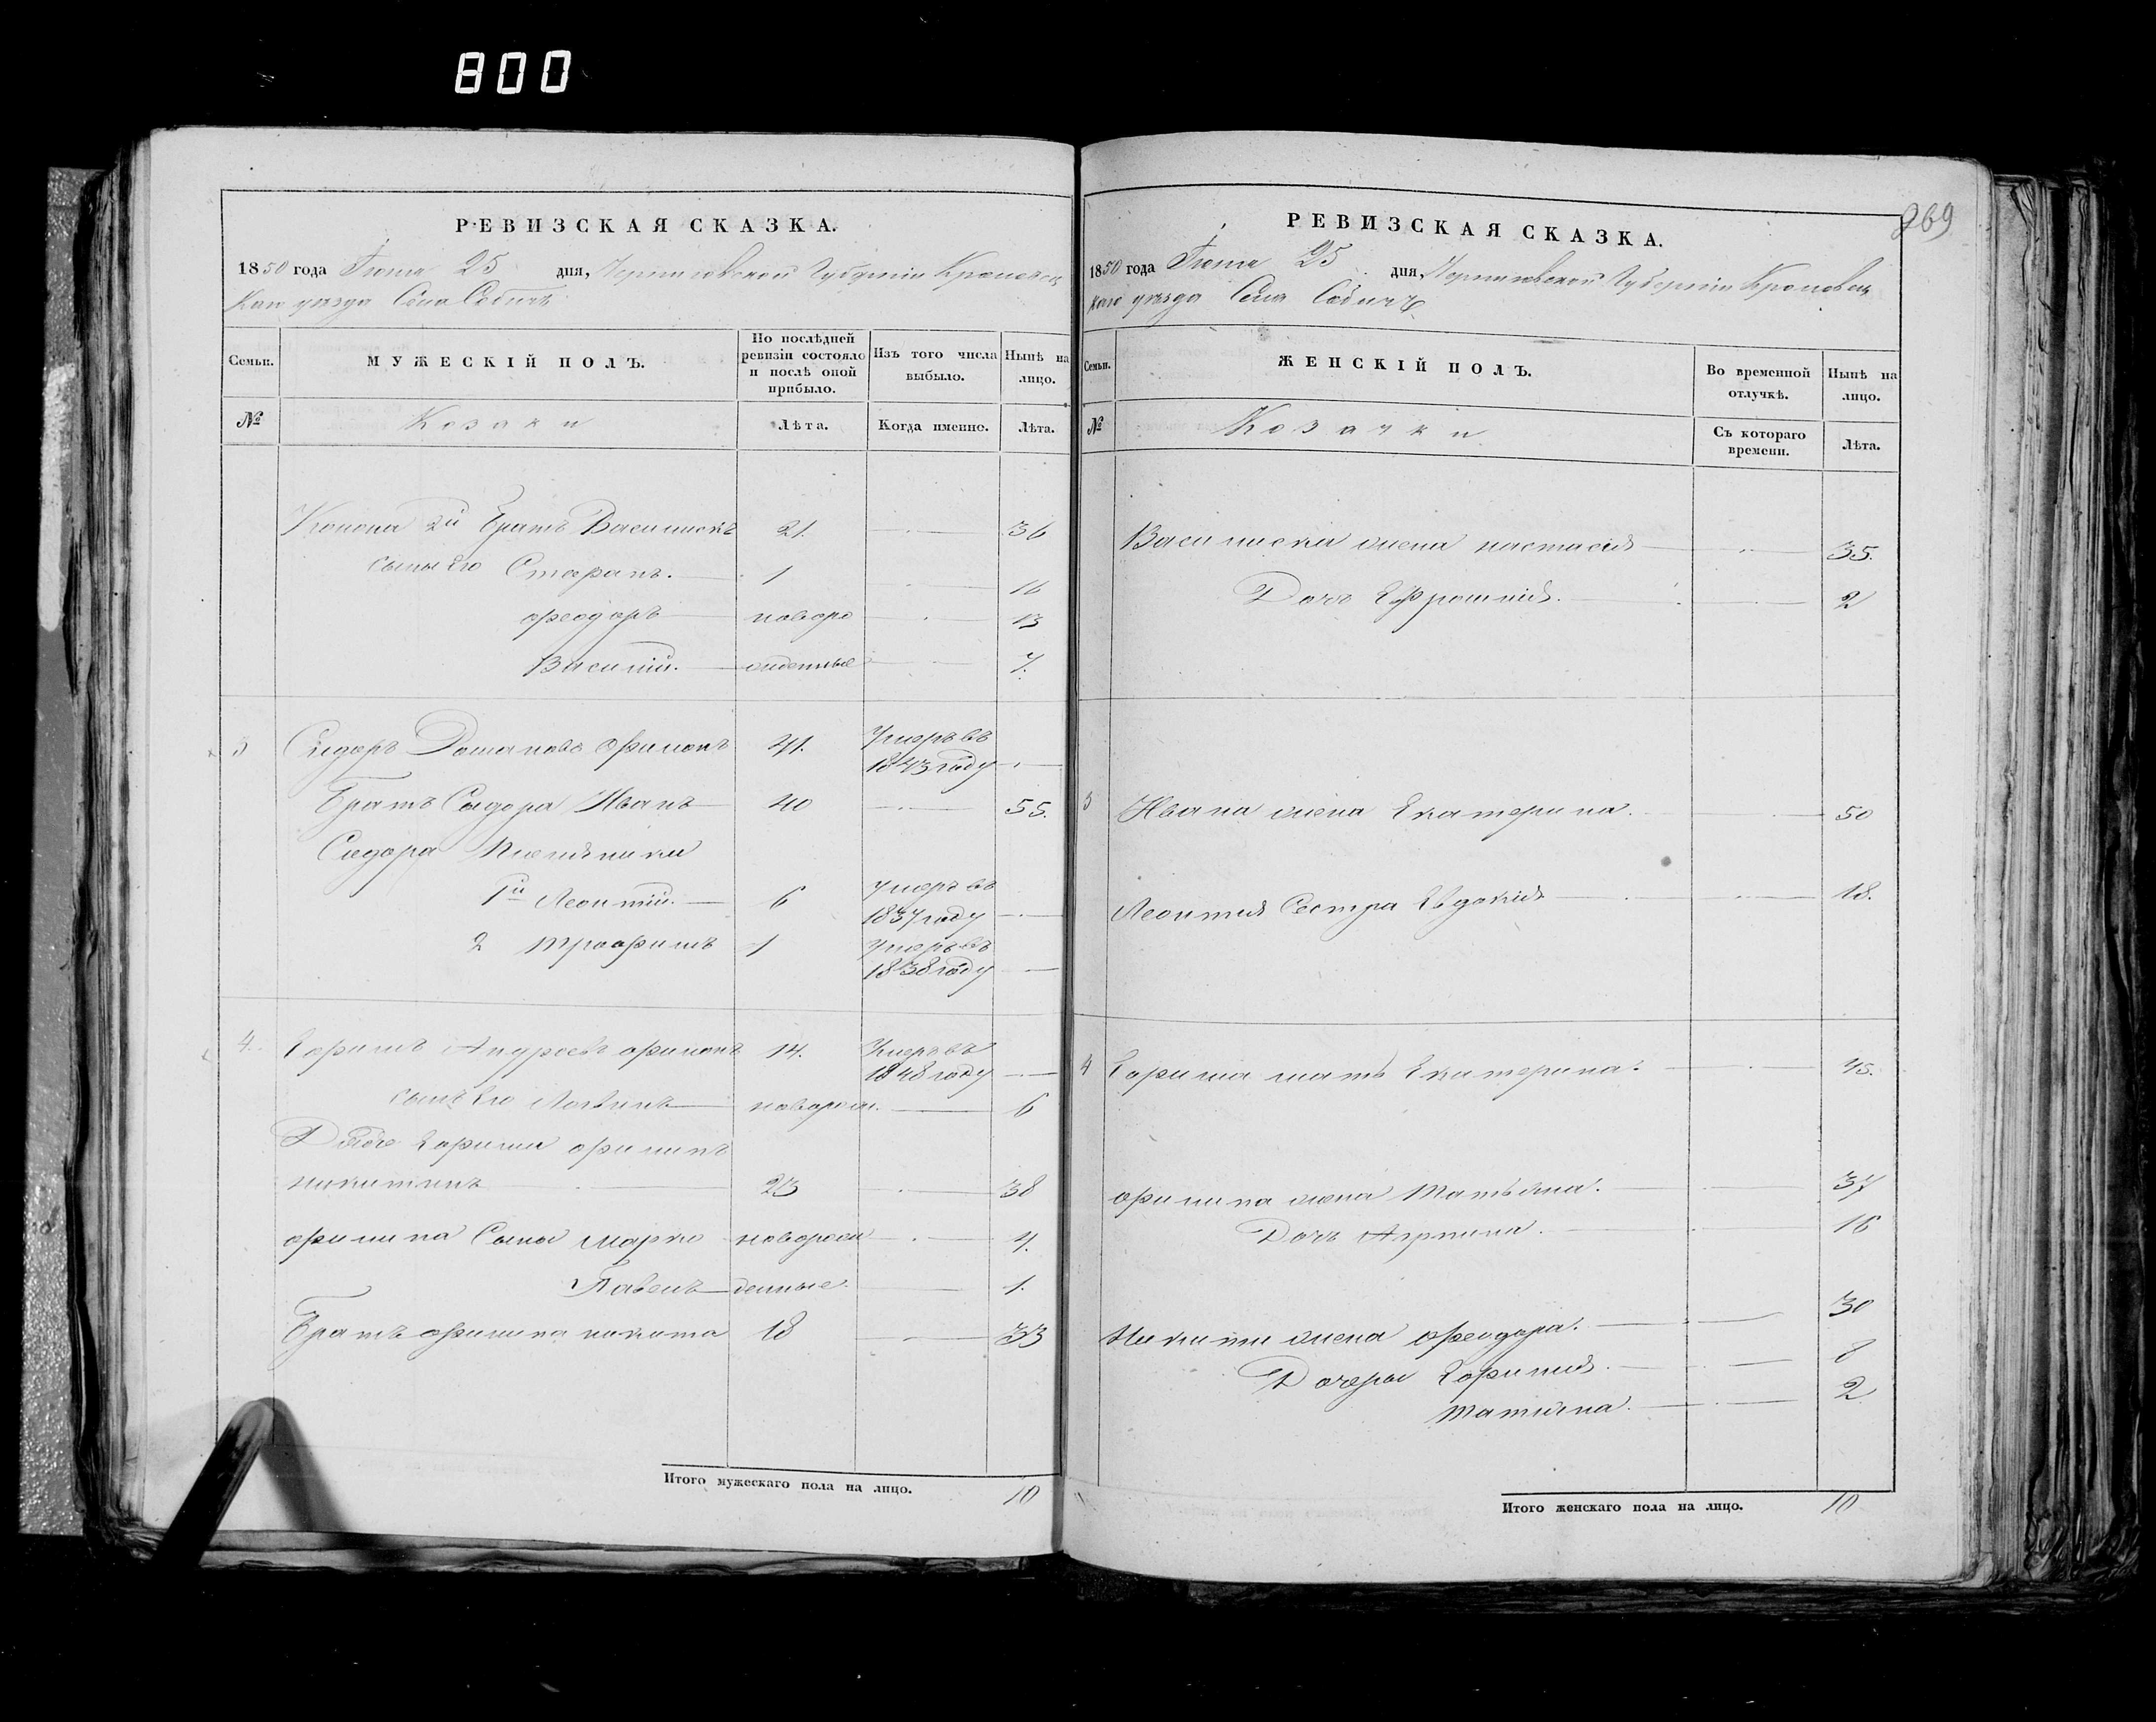 800
РЕВИЗСКАЯ СКАЗКА.
1850 года Іюня 25 дня, Черниговской Губерніи Кролевец
каго уезда Села Собичъ
Семьи. МУЖЕСКІЙ ПОЛЪ. По послѣдней ревизіи состояло и послѣ оной прибыло. Изъ того числа выбыло. Нынѣ на лицо.
№ Козаки Лѣта. Когда именно. Лѣта.
Конона 2й Братъ Василискъ 21. 36
сыны Его Стефанъ. 1 16
Феодоръ новоро 13
Василій. жденные 7.
3 Сидоръ Романовъ Филонъ 41. Умеръ въ
1843 году
Братъ Сидора Иванъ 40 55.
Сидора Племяники
1й Леонтій. 6 умеръ въ
1837 году
2 Трофимъ 1 Умеръ въ
1838 году
4. Ефимъ Андреевъ Филонъ 14. Умеръ въ
1848 году
сынъ Его Логвинъ новорож. 6
Дядя Ефима Филипъ
никитинъ 23 38
Филипа Сыны Марко новорож 4.
Павелъ денные. 1.
Братъ Филипа никита 18 33
Итого мужескаго пола на лицо. 10
269
РЕВИЗСКАЯ СКАЗКА.
1850 года Іюня 25 дня, Черниговской Губерніи Кролевец
каго уезда Села Собичъ
Семьи. ЖЕНСКІЙ ПОЛЪ. Во временной отлучкѣ. Нынѣ на лицо.
№ Козачки Съ котораго времени. Лѣта.
Василиска жена настасія 35.
Дочь Ефросинія. 2
3 Ивана жена Екатерина. 50
Леонтія Сестра Евдокія 18.
4 Ефима мать Екатерина. 45.
Филипа жена Татьяна. 37
Дочь Агрипина. 16
Никиты жена Феодора. 30
Дочеры Ефимія. 8
Татіяна. 2
Итого женскаго пола на лицо. 10